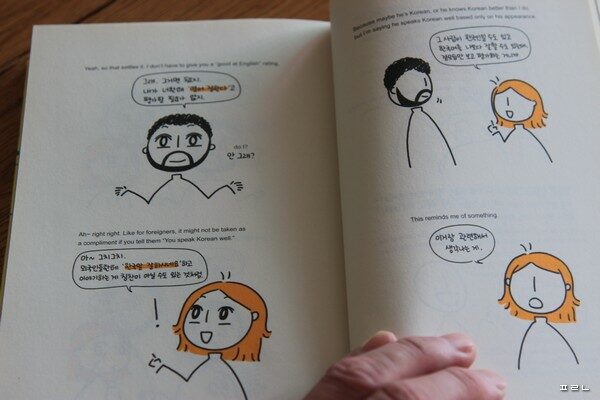 Yeah, so that settles it. I don't have to give you a "good at English" rating.
그래. 그거면 됐지.
내가 너한테 "영어 잘한다"고
평가할 필요가 없지.
do I?
안 그래?
Ah~ right right. Like for foreigners, it might not be taken as
a compliment if you tell them "You speak Korean well."
아~ 그치그치.
외국인들한테 "한국말 잘하시네요"하고
이야기하는 게 칭찬이 아닐 수도 있는 것처럼
!
Because maybe he's Korean, or he knows Korean better than I do,
but I'm saying he speaks Korean well based only on his appearance.
그 사람이 한국인일 수도 있고
한국어를 나보다 잘할 수도 있는데,
겉모습만 보고 평가하는 거니까
This reminds me of something.
이거랑 관련해서
생각나는 게.
프란